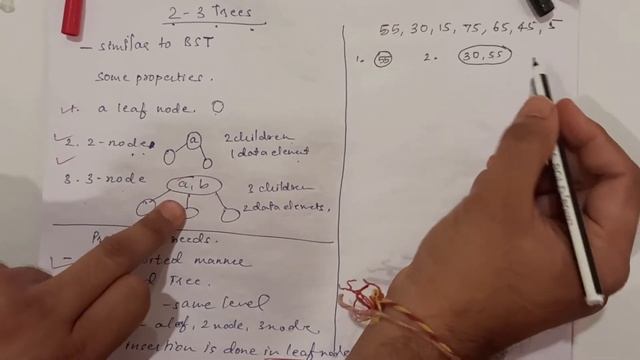 2-3 Trees
- similar to BST
some properties.
1. a leaf node.
2. 2-node. a 2 children
1 data element
3. 3-node a, b 3 children
2 data elements.
needs.
manner
Tree.
- same level
leaf, 2 node, 3 node,
insertion is done in leaf node
55, 30, 15, 75, 65, 45, 5
1. 55 2. 30, 55